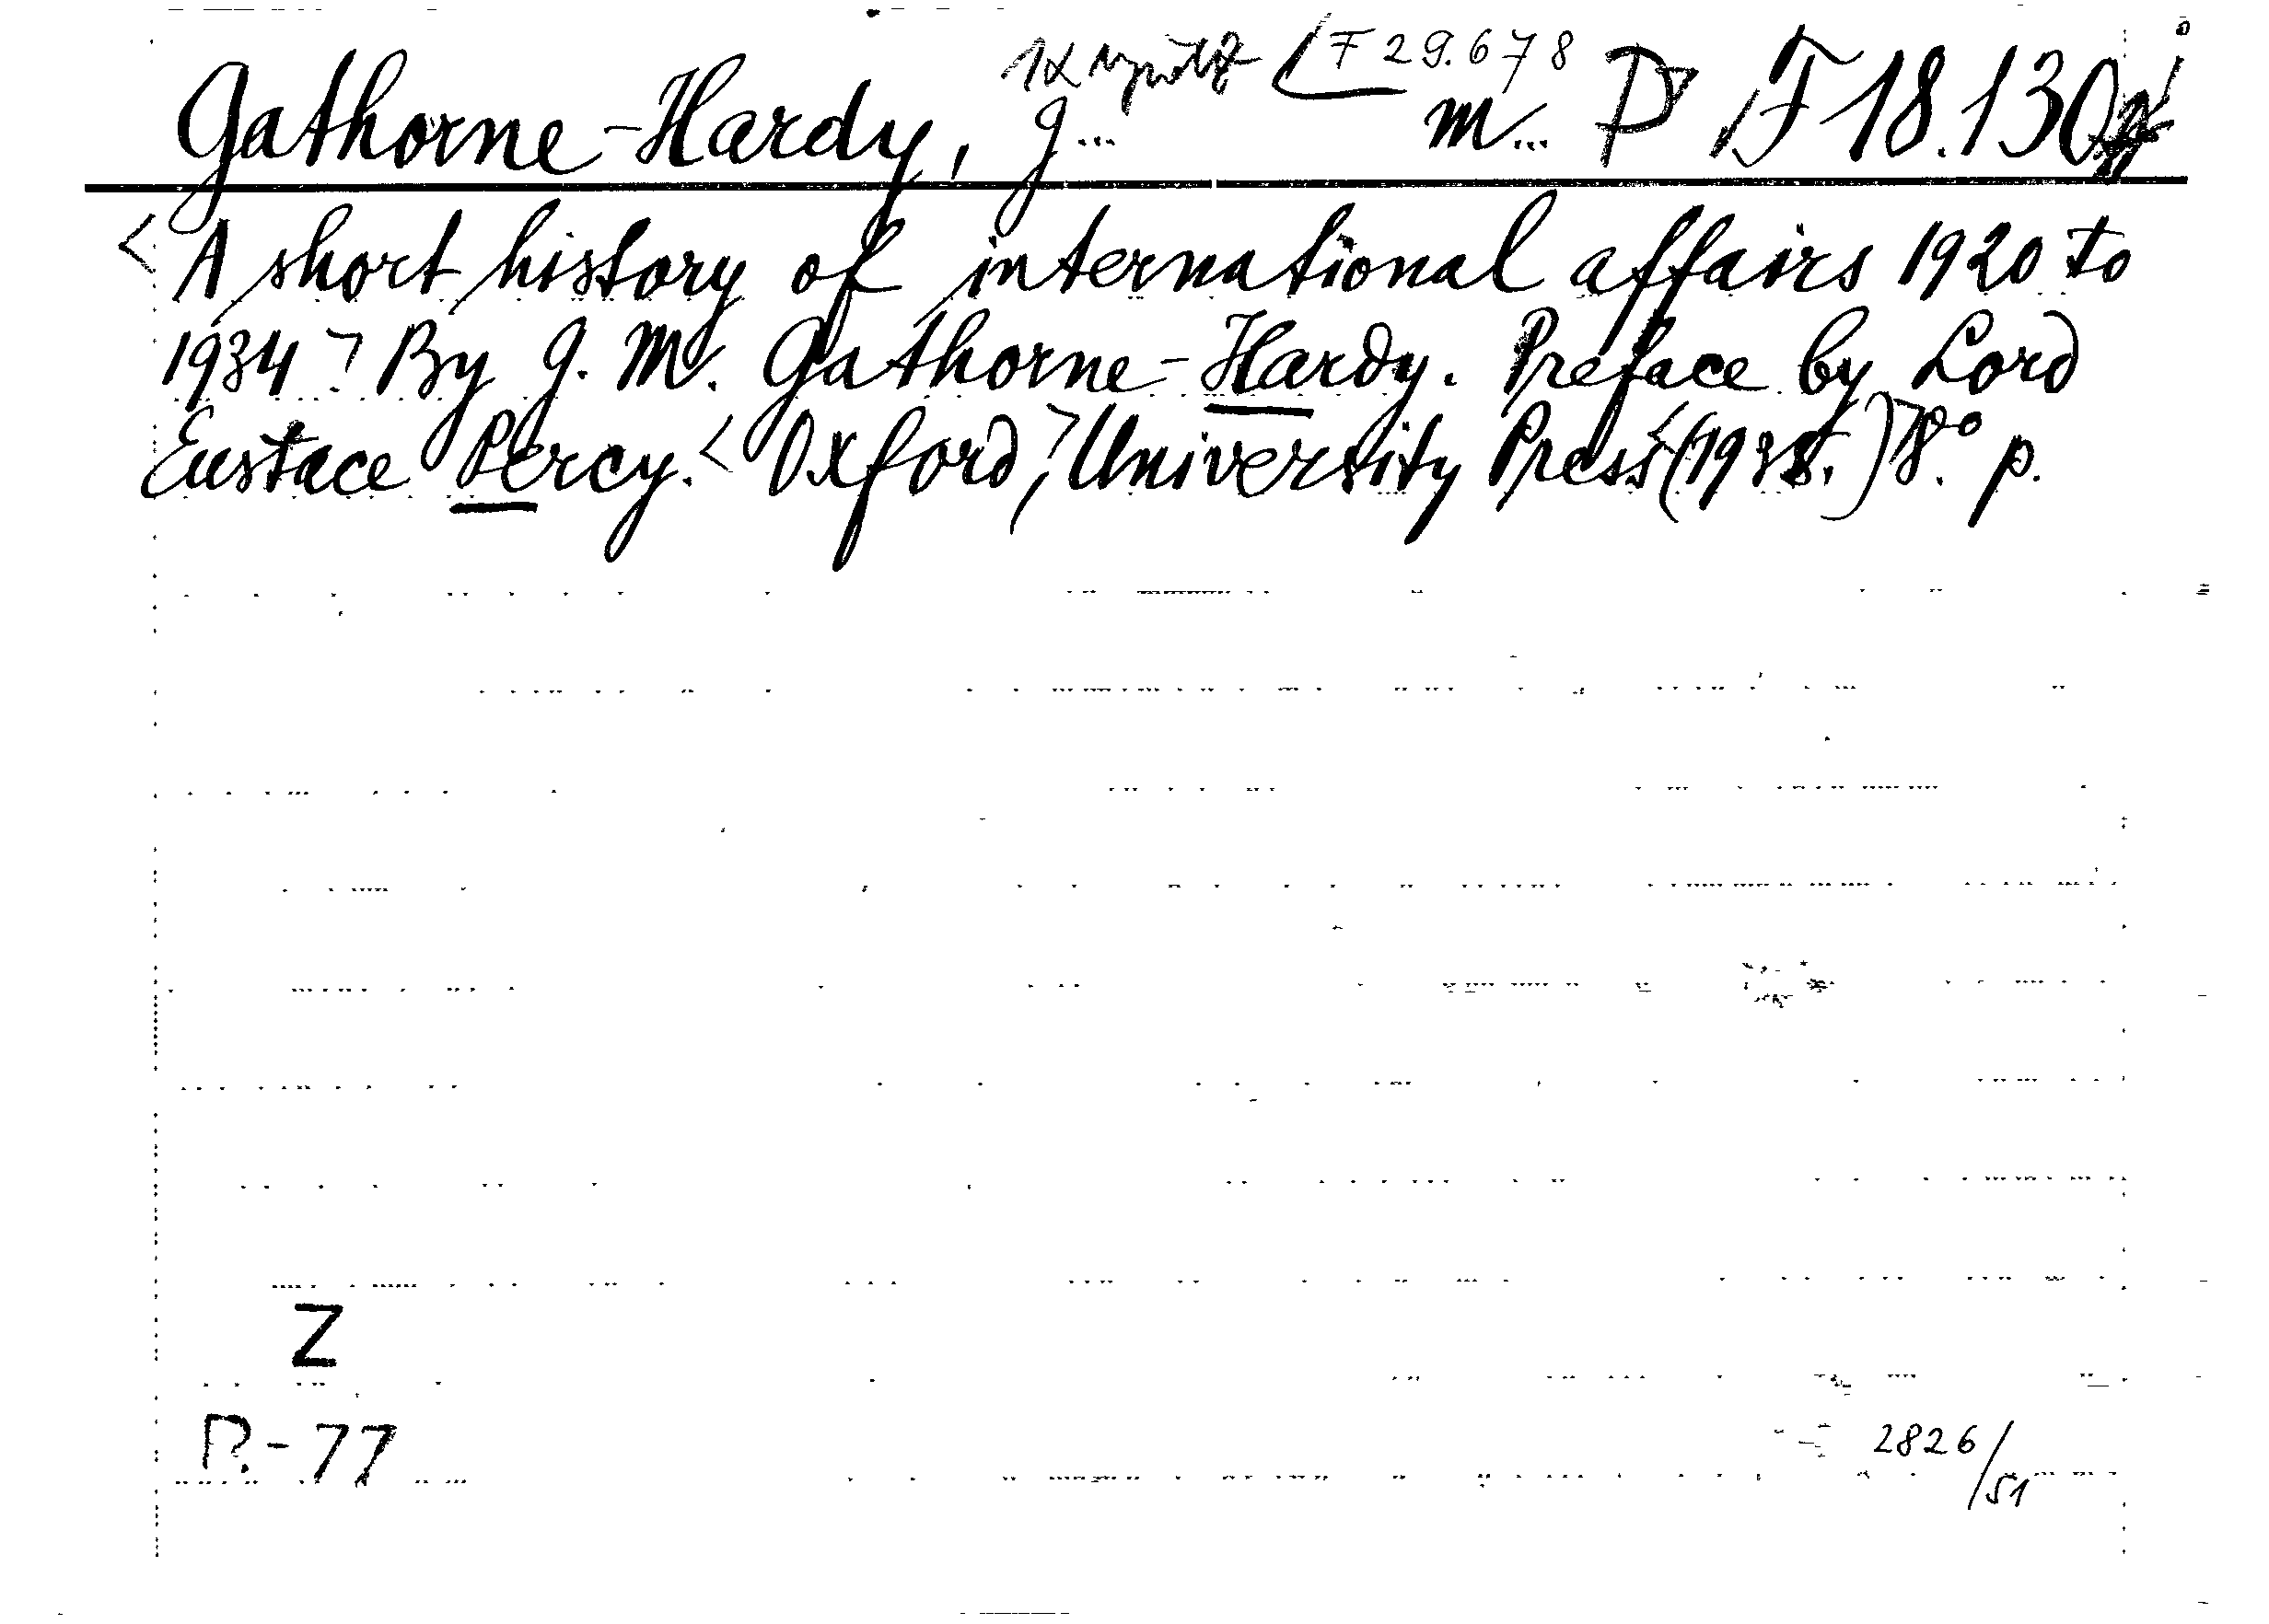 F 29.678
Gathorne-Hardy, G... M... P F 18.130
<A short history of international affairs 1920 to
1934> By G. M. Gathorne-Hardy. Preface by Lord
Eustace Percy. <Oxford,> University Press <(193 .)> 8.° p.
Z
P.-77
2826/51